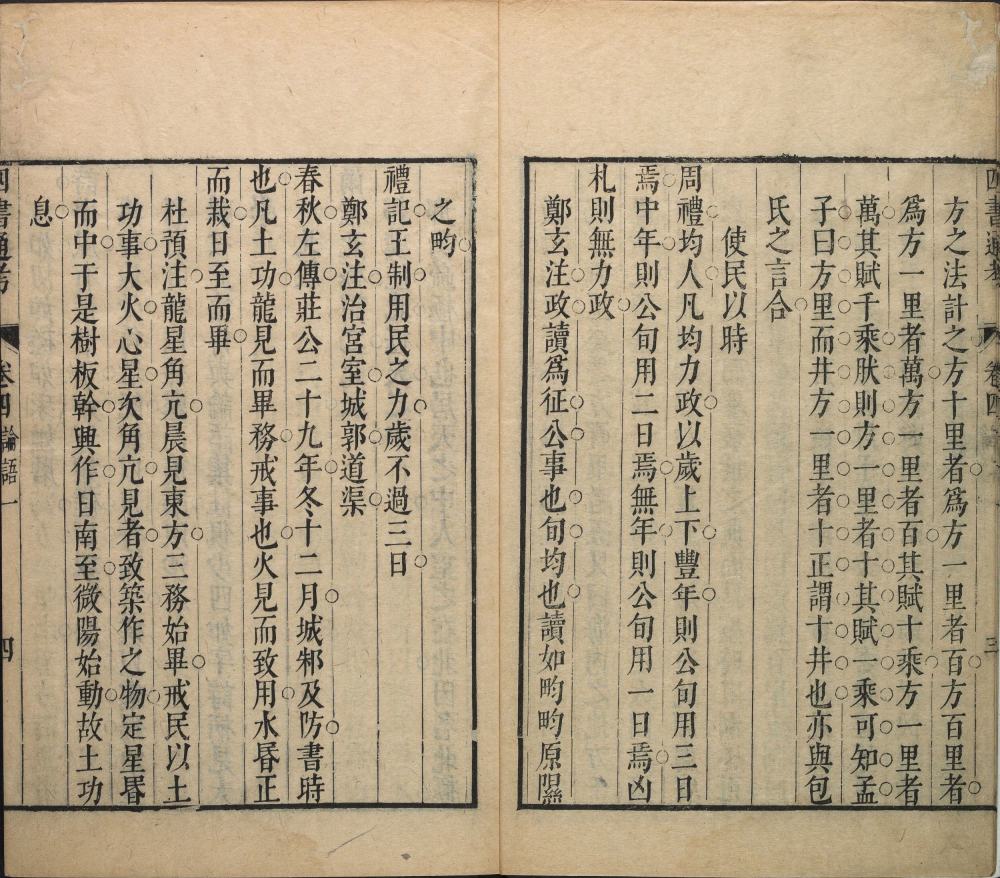 四書通考 卷四 三
方之法計之方十里者爲方一里者百方百里者
爲方一里者萬方一里者百其賦十乘方一里者
萬其賦千乘肰則方一里者十其賦一乘可知孟
子曰方里而井方一里者十正謂十井也亦與包
氏之言合
使民以時
周禮均人凡均力政以歲上下豐年則公旬用三日
焉中年則公旬用二日焉無年則公旬用一日焉凶
札則無力政
鄭玄注政讀爲征公事也旬均也讀如畇畇原隰
之畇
禮記王制用民之力歲不過三日
鄭玄注治宮室城郭道渠
春秋左傳莊公二十九年冬十二月城邾及防書時
也凡土功龍見而畢務戒事也火見而致用水昬正
而栽日至而畢
杜預注龍星角亢晨見東方三務始畢戒民以土
功事大火心星次角亢見者致築作之物定星昬
而中于是樹板幹興作日南至微陽始動故土功
息
四書通考 卷四 論語一 四